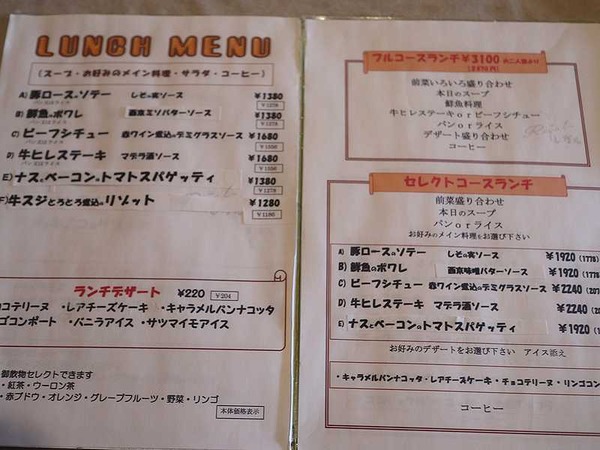 LUNCH MENU
(スープ・お好みのメイン料理・サラダ・コーヒー)
A) 豚ロースのソテー しその実ソース ¥1380
パン又はライス ¥1278
B) 鮮魚のポワレ 西京ミソバターソース ¥1380
パン又はライス ¥1278
C) ビーフシチュー 赤ワイン煮込のデミグラスソース ¥1680
パン又はライス ¥1556
D) 牛ヒレステーキ マデラ酒ソース ¥1680
パン又はライス ¥1556
E) ナスとベーコンのトマトスパゲッティ ¥1380
¥1278
F) 牛スジとろとろ煮込のリゾット ¥1280
¥1186
ランチデザート ¥220 ¥204
ョコテリーヌ ・レアチーズケーキ ・キャラメルパンナコッタ
ゴコンポート ・バニラアイス ・サツマイモアイス
御飲物セレクトできます
・紅茶・ウーロン茶
・赤ブドウ・オレンジ・グレープフルーツ・野菜・リンゴ
本体価格表示
フルコースランチ¥3100 ※二人前より
前菜いろいろ盛り合わせ
本日のスープ
鮮魚料理
牛ヒレステーキorビーフシチュー
パンorライス
デザート盛り合わせ
コーヒー
セレクトコースランチ
前菜盛り合わせ
本日のスープ
パンorライス
お好みのメイン料理をお選び下さい
A) 豚ロースのソテー しその実ソース ¥1920 (1778)
B) 鮮魚のポワレ 西京味噌バターソース ¥1920 (1778
C) ビーフシチュー 赤ワイン煮込のデミグラスソース ¥2240 (207
D) 牛ヒレステーキ マデラ酒ソース ¥2240 (20
E) ナスとベーコンのトマトスパゲッティ ¥1920 (1
お好みのデザートをお選び下さい アイス添え
・キャラメルパンナコッタ・レアチーズケーキ・チョコテリーヌ・リンゴコン
コーヒー